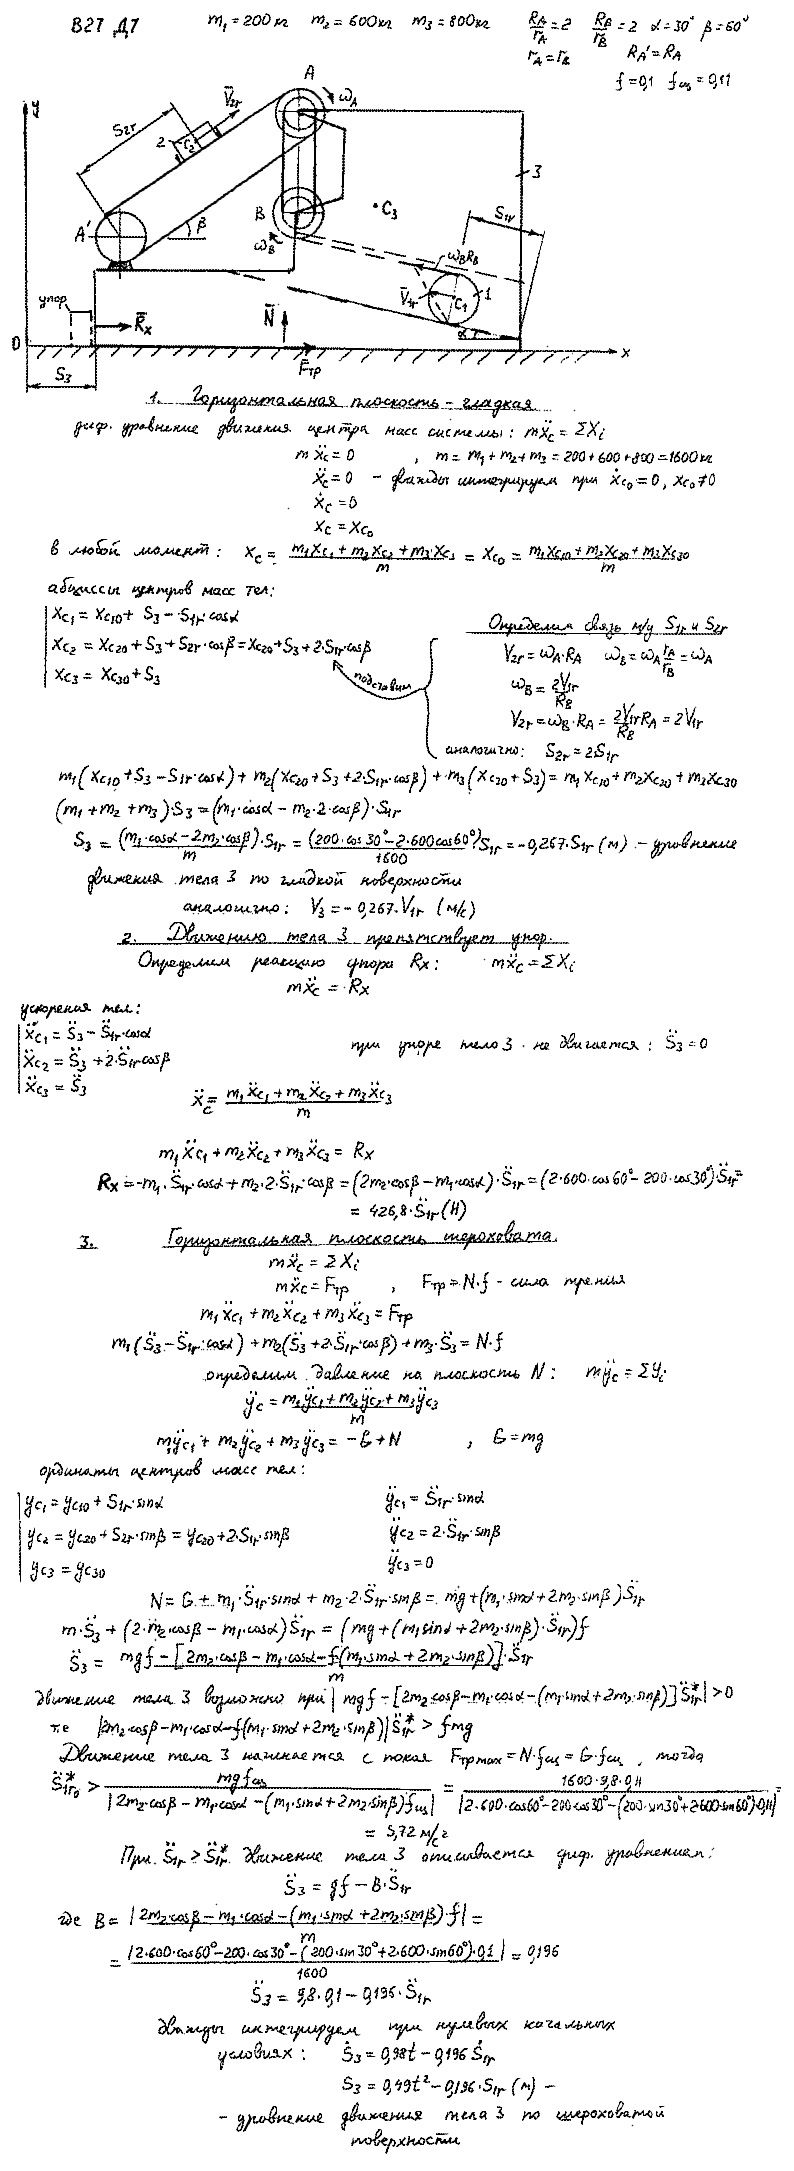 В27 Д7
m₁ = 200кг m₂ = 600кг m₃ = 800кг
R_A/r_A = 2 R_B/r_B = 2 α = 30° β = 60°
r_A = r_B R_A' = R_A
f = 0,1 f_сц = 0,11
y
S₂r
V̄₂r
2
C₂
A
ω_A
A'
β
B
ω_B
C₃
3
S₁r
ω_B R_B
V̄₁r
C₁
1
α
упор
R̄x
N̄
F̄тр
0
x
S₃
1. Горизонтальная плоскость – гладкая
диф. уравнение движения центра масс системы: mẍ_c = ΣXᵢ
mẍ_c = 0 , m = m₁ + m₂ + m₃ = 200 + 600 + 800 = 1600кг
ẍ_c = 0 – дважды интегрируем при ẋ_c₀ = 0, x_c₀ ≠ 0
ẋ_c = 0
x_c = x_c₀
в любой момент: x_c = (m₁x_c₁ + m₂x_c₂ + m₃x_c₃)/m = x_c₀ = (m₁x_c10 + m₂x_c20 + m₃x_c30)/m
абциссы центров масс тел:
x_c₁ = x_c10 + S₃ – S₁r·cosα
x_c₂ = x_c20 + S₃ + S₂r·cosβ = x_c20 + S₃ + 2·S₁r·cosβ
x_c₃ = x_c30 + S₃
подставим
Определим связь м/у S₁r и S₂r
V₂r = ω_A·R_A ω_B = ω_A r_A/r_B = ω_A
ω_B = 2V₁r/R_B
V₂r = ω_B·R_A = 2V₁r/R_B R_A = 2V₁r
аналогично: S₂r = 2S₁r
m₁(x_c10 + S₃ – S₁r·cosα) + m₂(x_c20 + S₃ + 2·S₁r·cosβ) + m₃(x_c30 + S₃) = m₁x_c10 + m₂x_c20 + m₃x_c30
(m₁ + m₂ + m₃)·S₃ = (m₁·cosα – m₂·2·cosβ)·S₁r
S₃ = (m₁·cosα – 2m₂·cosβ)/m·S₁r = (200·cos30° – 2·600cos60°)/1600 S₁r = –0,267·S₁r (м) – уровнение
движения тела 3 по гладкой поверхности
аналогично: V₃ = –0,267·V₁r (м/с)
2. Движению тела 3 препятствует упор.
Определим реакцию упора Rx: mẍ_c = ΣXᵢ
mẍ_c = Rx
ускорения тел:
ẍ_c₁ = S̈₃ – S̈₁r·cosα
ẍ_c₂ = S̈₃ + 2·S̈₁r·cosβ
ẍ_c₃ = S̈₃
при упоре тело 3 не двигается: S̈₃ = 0
ẍ_c = (m₁ẍ_c₁ + m₂ẍ_c₂ + m₃ẍ_c₃)/m
m₁ẍ_c₁ + m₂ẍ_c₂ + m₃ẍ_c₃ = Rx
Rx = –m₁·S̈₁r·cosα + m₂·2·S̈₁r·cosβ = (2m₂·cosβ – m₁·cosα)·S̈₁r = (2·600·cos60° – 200·cos30°)S̈₁r =
= 426,8·S̈₁r (Н)
3. Горизонтальная плоскость шероховата.
mẍ_c = ΣXᵢ
mẍ_c = Fтр , Fтр = N·f – сила трения
m₁ẍ_c₁ + m₂ẍ_c₂ + m₃ẍ_c₃ = Fтр
m₁(S̈₃ – S̈₁r·cosα) + m₂(S̈₃ + 2·S̈₁r·cosβ) + m₃·S̈₃ = N·f
определим давление на плоскость N: mÿ_c = ΣYᵢ
ÿ_c = (m₁ÿ_c₁ + m₂ÿ_c₂ + m₃ÿ_c₃)/m
m₁ÿ_c₁ + m₂ÿ_c₂ + m₃ÿ_c₃ = –G + N , G = mg
ординаты центров масс тел:
y_c₁ = y_c10 + S₁r·sinα ÿ_c₁ = S̈₁r·sinα
y_c₂ = y_c20 + S₂r·sinβ = y_c20 + 2·S₁r·sinβ ÿ_c₂ = 2·S̈₁r·sinβ
y_c₃ = y_c30 ÿ_c₃ = 0
N = G + m₁·S̈₁r·sinα + m₂·2·S̈₁r·sinβ = mg + (m₁·sinα + 2m₂·sinβ)S̈₁r
m·S̈₃ + (2·m₂·cosβ – m₁·cosα)S̈₁r = (mg + (m₁sinα + 2m₂·sinβ)·S̈₁r)f
S̈₃ = (mgf – [2m₂·cosβ – m₁·cosα – f(m₁·sinα + 2m₂·sinβ)]·S̈₁r)/m
движение тела 3 возможно при |mgf – [2m₂cosβ – m₁·cosα – (m₁·sinα + 2m₂·sinβ)]S̈₁r*| > 0
т.е |2m₂·cosβ – m₁·cosα – f(m₁·sinα + 2m₂·sinβ)|S̈₁r* > fmg
Движение тела 3 начинается с покоя Fтр max = N·f_сц = G·f_сц , тогда
S̈₁r₀* > mgf_сц/|2m₂·cosβ – m₁·cosα – (m₁·sinα + 2m₂sinβ)f_сц| = 1600·9,8·0,11/|2·600·cos60° – 200·cos30° – (200·sin30° + 2·600·sin60°)·0,11| =
= 5,72 м/с²
При S̈₁r ≥ S̈₁r* движение тела 3 описывается диф. уравнением:
S̈₃ = gf – B·S̈₁r
где B = |2m₂·cosβ – m₁·cosα – (m₁·sinα + 2m₂·sinβ)·f|/m =
= |2·600·cos60° – 200·cos30° – (200·sin30° + 2·600·sin60°)·0,1|/1600 = 0,196
S̈₃ = 9,8·0,1 – 0,196·S̈₁r
дважды интегрируем при нулевых начальных
условиях: Ṡ₃ = 0,98t – 0,196Ṡ₁r
S₃ = 0,49t² – 0,196·S₁r (м) –
– уровнение движения тела 3 по шероховатой
поверхности